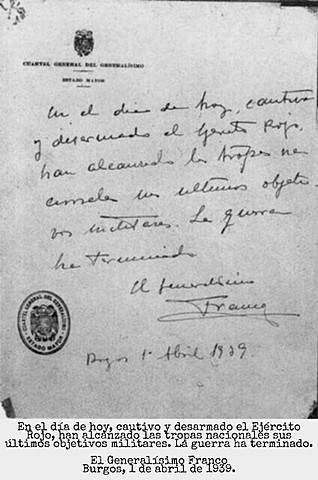 CUARTEL GENERAL DEL GENERALÍSIMO
ESTADO MAYOR
En el día de hoy, cautivo
y desarmado el Ejército Rojo,
han alcanzado las tropas na-
cionales sus ultimos objeti-
vos militares. La guerra
ha terminado
El Generalísimo
Franco
Burgos 1º Abril 1939
CUARTEL GENERAL DEL GENERALISIMO
ESTADO MAYOR
En el día de hoy, cautivo y desarmado el Ejército
Rojo, han alcanzado las tropas nacionales sus
últimos objetivos militares. La guerra ha terminado.
El Generalísimo Franco
Burgos, 1 de abril de 1939.